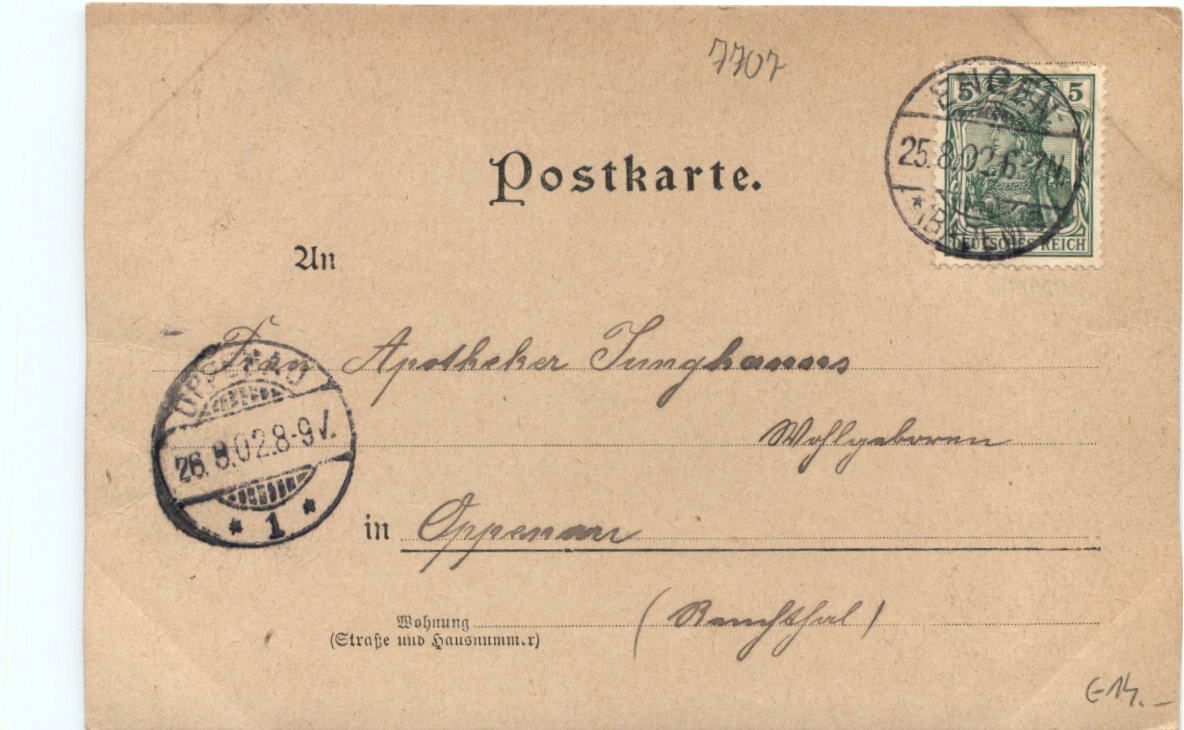 7707
5 5
ENGEN
25.8.02.6-7N.
* (BADEN) *
DEUTSCHES REICH
Postkarte.
An
Frau Apotheker Junghanns
OPPENAU
26.8.02.8-9V.
* 1 *
Wohlgeboren
in Oppenau
(Renchthal)
Wohnung
(Straße und Hausnummer)
€ 14.–